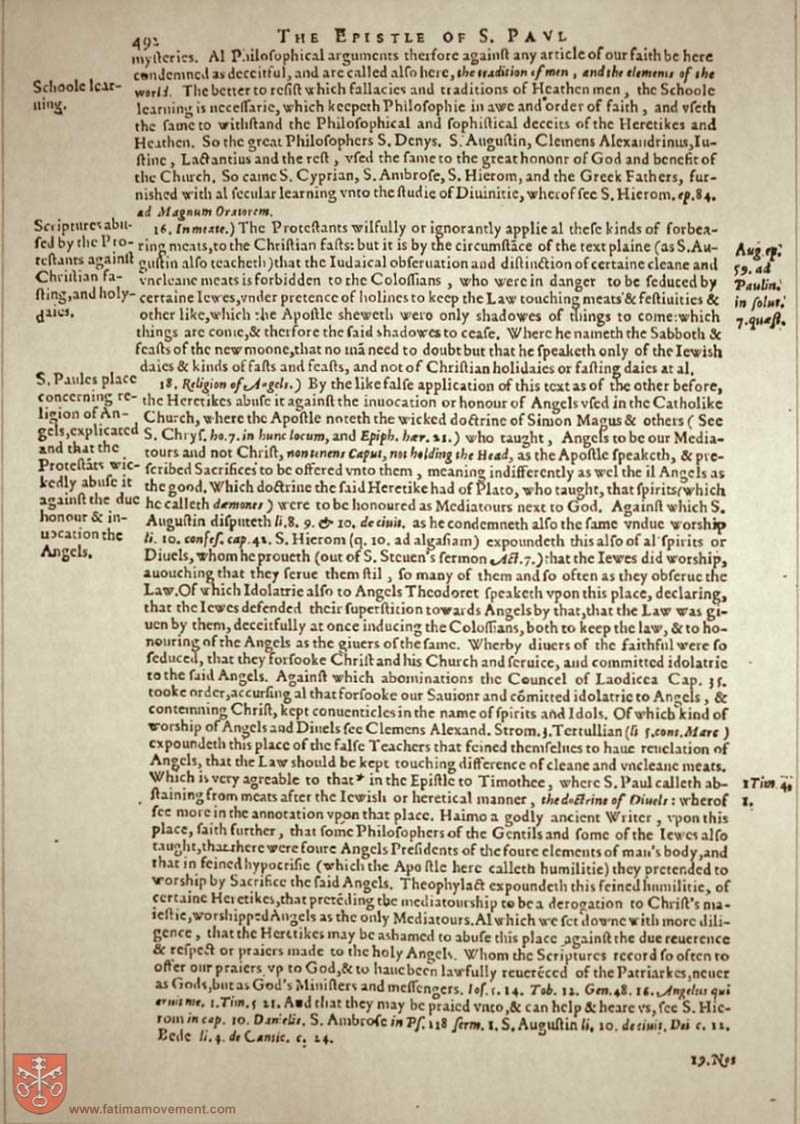 492
THE EPISTLE OF S. PAVL
myſteries. Al Philoſophical arguments therfore againſt any article of our faith be here
condemned as deceitful, and are called alſo here, the tradition of men, and the elements of the
world. The better to reſiſt which fallacies and traditions of Heathen men, the Schoole
learning is neceſſarie, which keepeth Philoſophie in awe and order of faith, and vſeth
the ſame to withſtand the Philoſophical and ſophiſtical deceits of the Heretikes and
Heathen. So the great Philoſophers S. Denys. S. Auguſtin, Clemens Alexandrinus, Iu-
ſtine, Lactantius and the reſt, vſed the ſame to the great hononr of God and benefit of
the Church. So came S. Cyprian, S. Ambroſe, S. Hierom, and the Greek Fathers, fur-
niſhed with al ſecular learning vnto the ſtudie of Diuinitie, wherof ſee S. Hierom. ep. 84.
ad Magnum Oratorem.
Schoole lear-
ning.
16. In meate.) The Proteſtants wilfully or ignorantly applie al theſe kinds of forbea-
ring meats, to the Chriſtian faſts: but it is by the circumſtāce of the text plaine (as S. Au-
guſtin alſo teacheth) that the Iudaical obſeruation and diſtinction of certaine cleane and
vncleane meats is forbidden to the Coloſſians, who were in danger to be ſeduced by
certaine Iewes, vnder pretence of holines to keep the Law touching meats & feſtiuities &
other like, which the Apoſtle sheweth were only shadowes of things to come: which
things are come, & therfore the ſaid shadowes to ceaſe. Where he nameth the Sabboth &
feaſts of the new moone, that no mā need to doubt but that he ſpeaketh only of the Iewish
daies & kinds of faſts and feaſts, and not of Chriſtian holidaies or faſting daies at al.
Scriptures abu-
ſed by the Pro-
teſtants againſt
Chriſtian fa-
ſting, and holy-
daies.
Aug. ep.
59. ad
Paulin.
in ſolut.
7. quæſt.
18. Religion of Angels.) By the like falſe application of this text as of the other before,
the Heretikes abuſe it againſt the inuocation or honour of Angels vſed in the Catholike
Church, where the Apoſtle noteth the wicked doctrine of Simon Magus & others (See
S. Chryſ. ho. 7. in hunc locum, and Epiph. hær. 21.) who taught, Angels to be our Media-
tours and not Chriſt, non tenens Caput, not holding the Head, as the Apoſtle ſpeaketh, & pre-
ſcribed Sacrifices to be offered vnto them, meaning indifferently as wel the il Angels as
the good. Which doctrine the ſaid Heretike had of Plato, who taught, that ſpirits (which
he calleth dæmones) were to be honoured as Mediatours next to God. Againſt which S.
Auguſtin diſputeth li. 8. 9. & 10. de ciuit. as he condemneth alſo the ſame vndue worship
li. 10. confeſ. cap. 42. S. Hierom (q. 10. ad algaſiam) expoundeth this alſo of al ſpirits or
Diuels, whom he proueth (out of S. Steuen's ſermon Act. 7.) that the Iewes did worship,
auouching that they ſerue them ſtil, ſo many of them and ſo often as they obſerue the
Law. Of which Idolatrie alſo to Angels Theodoret ſpeaketh vpon this place, declaring,
that the Iewes defended their ſuperſtition towards Angels by that, that the Law was gi-
uen by them, deceitfully at once inducing the Coloſſians, both to keep the law, & to ho-
nouring of the Angels as the giuers of the ſame. Wherby diuers of the faithful were ſo
ſeduced, that they forſooke Chriſt and his Church and ſeruice, and committed idolatrie
to the ſaid Angels. Againſt which abominations the Councel of Laodicea Cap. 35.
tooke order, accurſing al that forſooke our Sauiour and cōmitted idolatrie to Angels, &
contemning Chriſt, kept conuenticles in the name of ſpirits and Idols. Of which kind of
worship of Angels and Diuels ſee Clemens Alexand. Strom. 3. Tertullian (li 5. cont. Marc)
expoundeth this place of the falſe Teachers that feined themſelues to haue reuelation of
Angels, that the Law should be kept touching difference of cleane and vncleane meats.
Which is very agreable to that* in the Epiſtle to Timothee, where S. Paul calleth ab-
ſtaining from meats after the Iewish or heretical manner, the doctrine of Diuels: wherof
ſee more in the annotation vpon that place. Haimo a godly ancient Writer, vpon this
place, ſaith further, that ſome Philoſophers of the Gentils and ſome of the Iewes alſo
taught, that there were foure Angels Preſidents of the foure elements of man's body, and
that in feined hypocriſie (which the Apoſtle here calleth humilitie) they pretended to
worship by Sacrifice the ſaid Angels. Theophylact expoundeth this feined humilitie, of
certaine Heretikes, that pretēding the mediatourship to be a derogation to Chriſt's ma-
ieſtie, worshipped Angels as the only Mediatours. Al which we ſet downe with more dili-
gence, that the Heretikes may be ashamed to abuſe this place againſt the due reuerence
& reſpect or praiers made to the holy Angels. Whom the Scriptures record ſo often to
offer our praiers vp to God, & to haue been lawfully reuerēced of the Patriarkes, neuer
as Gods, but as God's Miniſters and meſſengers. Ioſ. 5. 14. Tob. 12. Gen. 48. 16. Angelus qui
eruit me. 1. Tim. 5 21. And that they may be praied vnto, & can help & heare vs, ſee S. Hie-
rom in cap. 10. Danielis. S. Ambroſe in Pſ. 118 ſerm. 1. S. Auguſtin li. 10. de ciuit. Dei c. 12.
Bede li. 4. de Cantic. c. 24.
S. Paules place
concerning re-
ligion of An-
gels, explicated
and that the
Proteſtāts wic-
kedly abuſe it
againſt the due
honour & in-
uocation the
Angels.
1 Tim 4,
1.
19. Not
www.fatimamovement.com